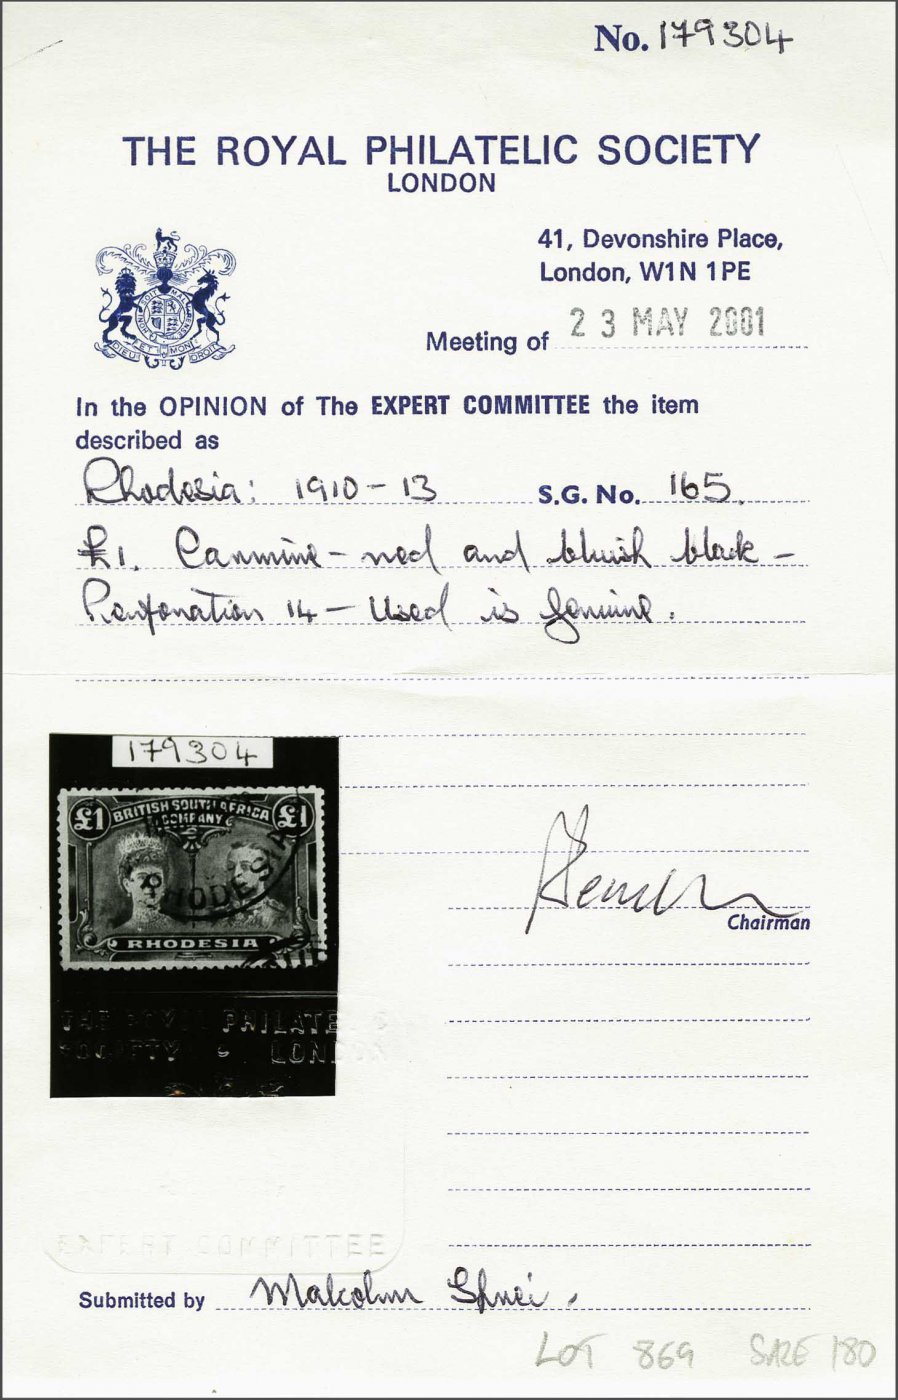 No. 179304
THE ROYAL PHILATELIC SOCIETY
LONDON
41, Devonshire Place,
London, W1N 1PE
Meeting of 23 MAY 2001
DIEU ET MON DROIT
In the OPINION of The EXPERT COMMITTEE the item
described as
Rhodesia: 1910-13 S.G. No. 165.
£1. Carmine-red and bluish black -
Perforation 14 - Used is genuine.
179304
£1 BRITISH SOUTH AFRICA £1
COMPANY
RHODESIA
RHODESIA
THE ROYAL PHILATELIC
SOCIETY LONDON
Chairman
EXPERT COMMITTEE
Submitted by Malcolm
LOT 869 SALE 180